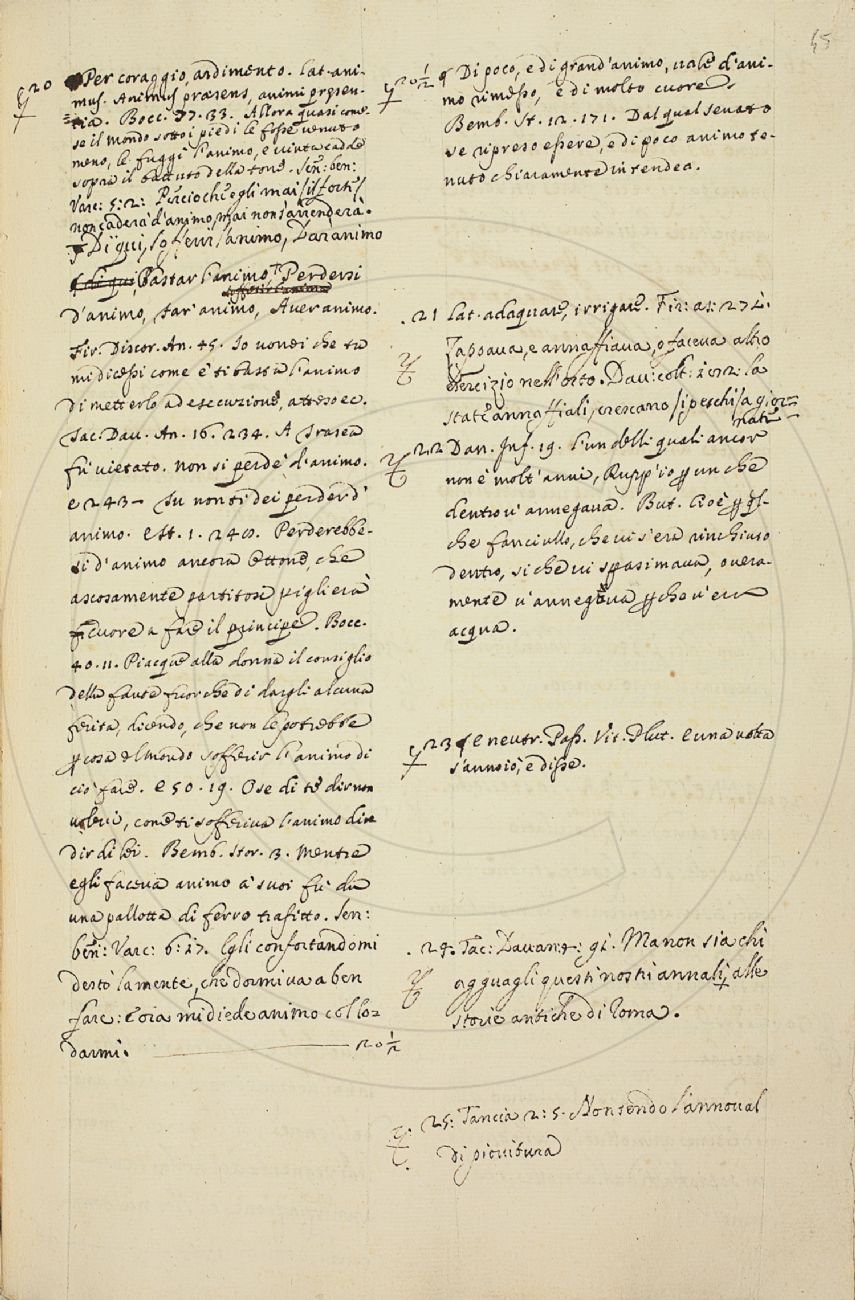 45
20 Per coraggio, ardimento. Lat. ani-
mus. Animus præsens, animi præsen-
tia. Bocc: 77. 33. Allora quasi come
se il mondo sotto i piedi le fosse venuto
meno, le fuggì l'animo, e vinta cadde
sopra il battuto della torre. Sen: ben:
Varc: 5: 2: Perciochè egli mai, si forti
non caderà d'animo, mai non s'arrenderà.
Di qui, Sofferir l'animo, Dar animo
di qui, Bastar l'animo, Perdersi
d'animo, Far' animo, Aver animo.
Fir. Discor. An. 45. Io vorrei che tu
mi dicessi come e' ti basta l'animo
di metterlo ad esecuzione, atteso ec.
Tac. Dav. An. 16. 234. A Trasea
fu vietato. non si perdè d'animo.
e 243 – Tu non ti dei perder d'
animo. e st. 1. 240. Perderebbe-
si d'animo ancora Ottone, che
ascosamente partitosi piglierà
cuore a fare il principe. Bocc.
40. 11. Piacque alla donna il consiglio
della fante fuor che di dargli alcuna
ferita, dicendo, che non le potrebbe
per cosa del Mondo sofferir l'animo di
ciò fare. e 50. 19. Ose di te dir non
volevi, come ti sofferiva l'animo di
dir di lei. Bemb. stor. 3. Mentre
egli faceva animo a' suoi fù da
una pallotta di ferro trafitto. Sen:
ben: Varc: 6: 27. Egli confortandomi
destò la mente, che dormiva a ben
fare: Coia mi diede animo col lo-
darmi. 20 1/2
20 1/2 Di poco, e di grand'animo, vale d'ani-
mo rimesso, e di molto cuore.
Bemb. St. 12. 171. Dal qual senato
se ripreso essere, e di poco animo te-
nuto chiaramente intendea.
21 Lat. adaquare, irrigare. Fir: as: 274.
Zappava, e annaffiava, o faceva altro
esercizio nell'orto. Dav: colt: 192: la
state annaffiali, crescano si pe' chi s'a gior-
nate
22 Dan. Inf. 19. L'un delli quali ancor
non è molt'anni, Rupp'io per un che
dentro v'annegava. But. Cioè per qual-
che fanciullo, che vi s'era rinchiuso
dentro, si che vi spasimava, overa-
mente v'annegava perchè v'era
acqua.
23 e neutr. Pass. Vit. Plut. E una volta
s'annoiò, e disse.
24. Tac: Davan: 91. Ma non sia chi
agguagli questi nostri annali, alle
storie antiche di Roma.
25: Tancia 2: 5. Non sendo l'annoval
di pioitura